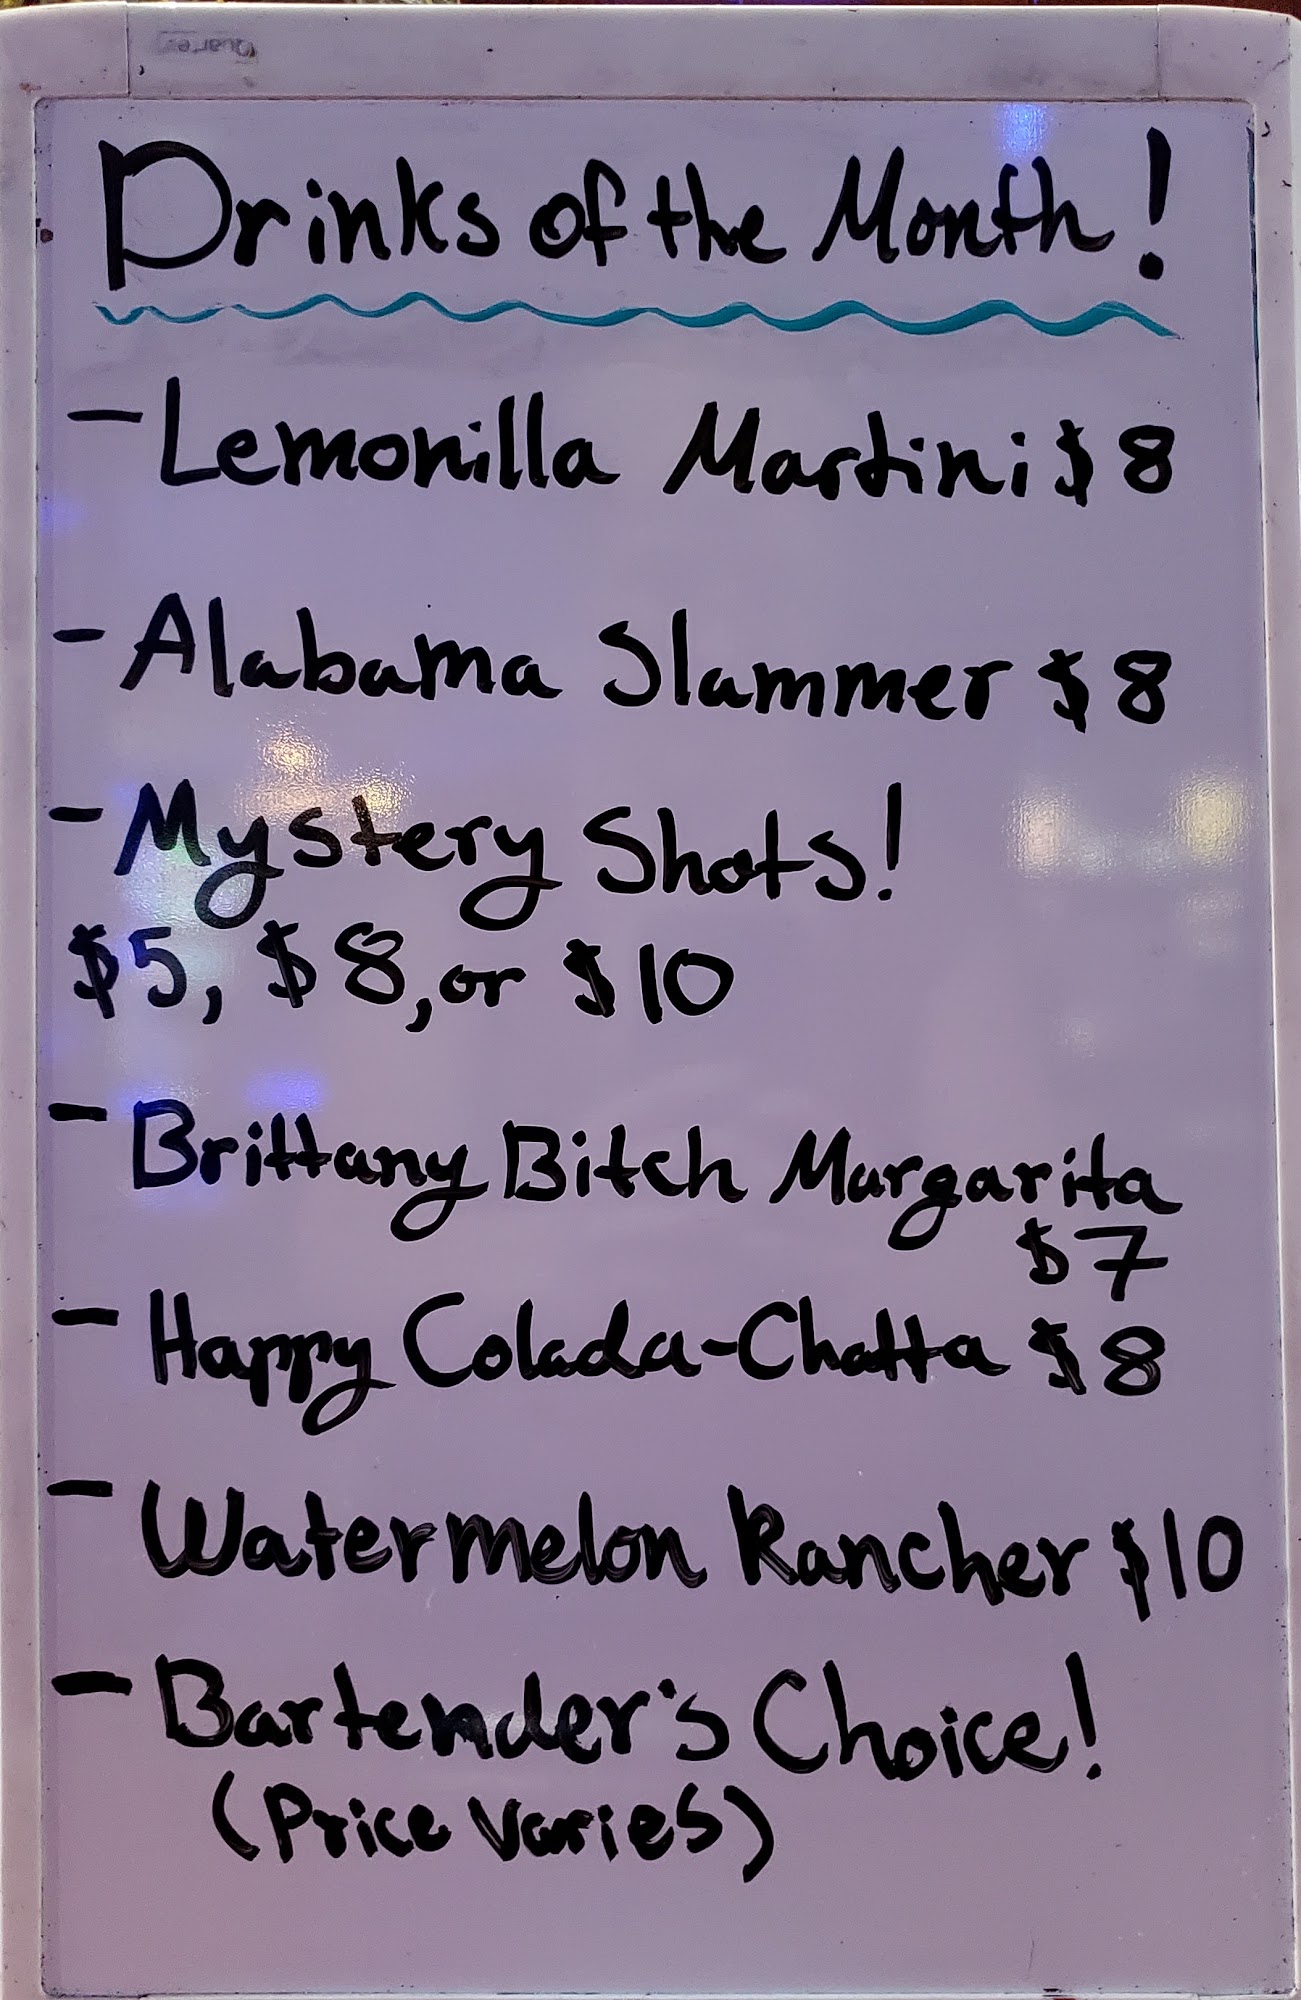 Drinks of the Month!
- Lemonilla Martini $8
- Alabama Slammer $8
- Mystery Shots!
$5, $8, or $10
- Brittany Bitch Margarita
$7
- Happy Colada-Chatta $8
- Watermelon Rancher $10
- Bartender's Choice!
(Price Varies)